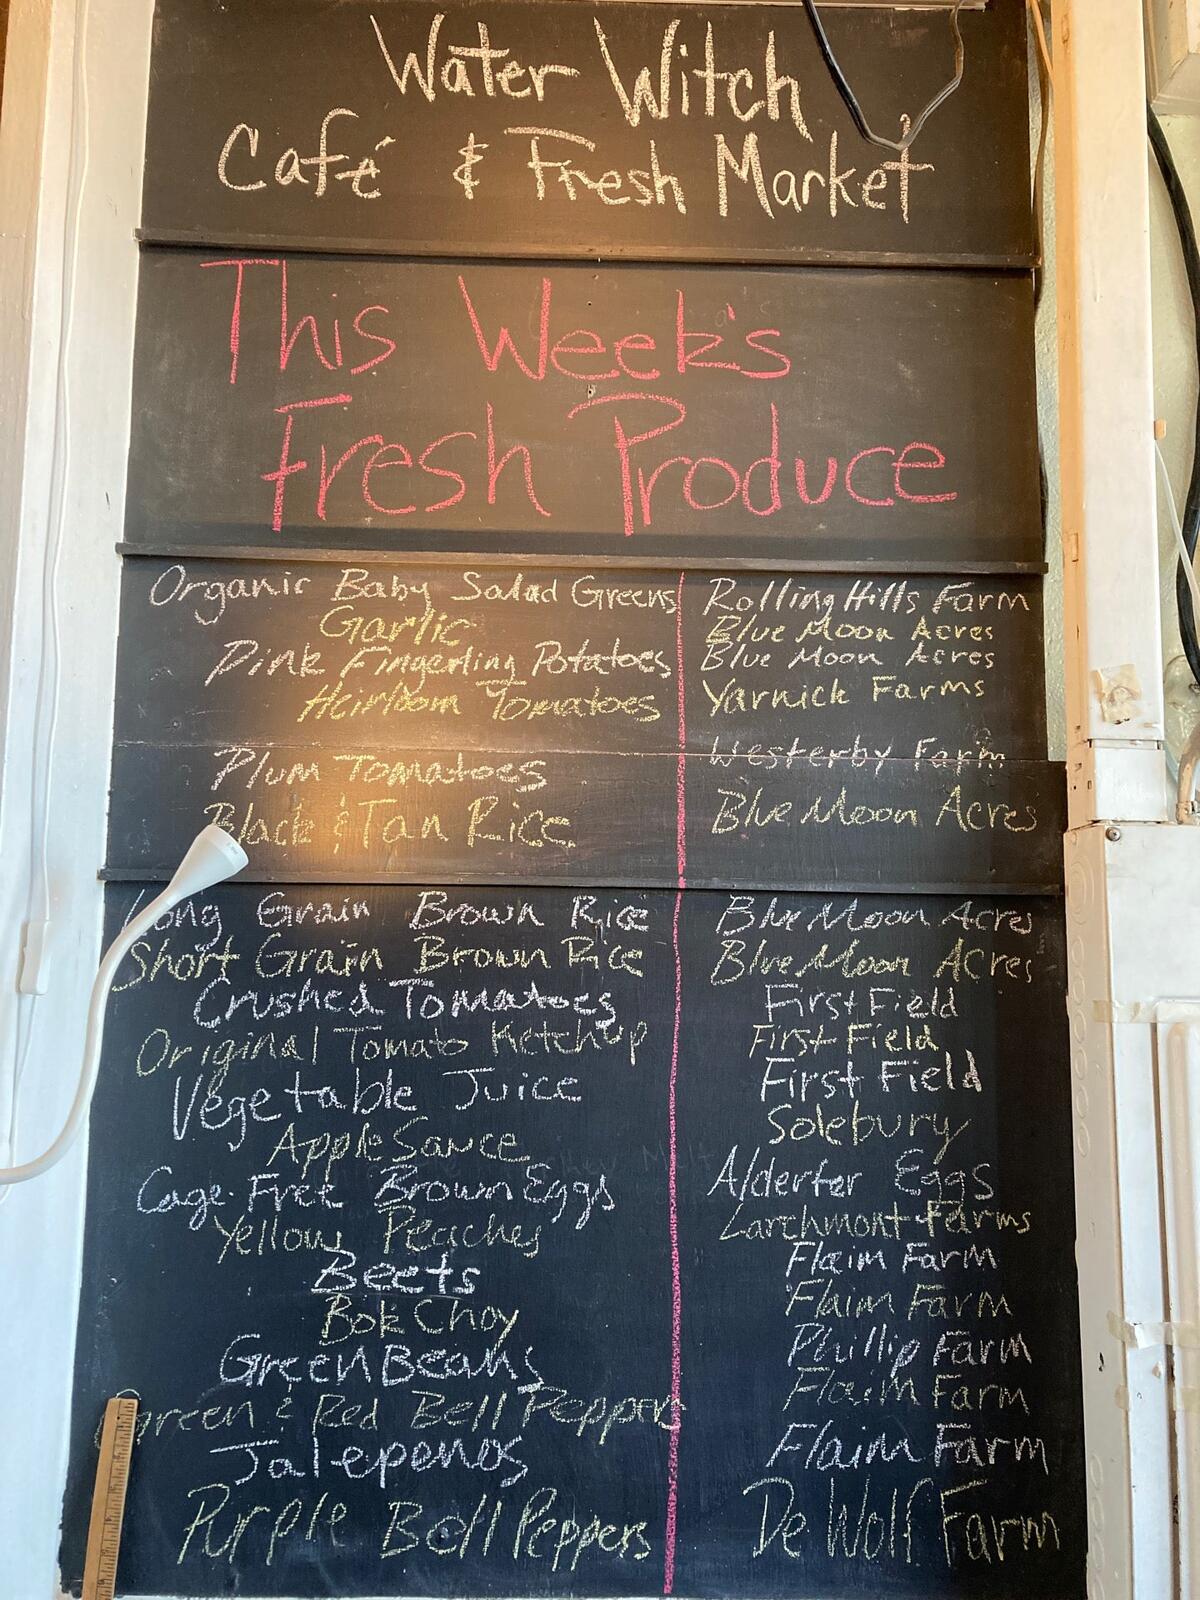 Water Witch
Café & Fresh Market
This Week's
Fresh Produce
Organic Baby Salad Greens Rolling Hills Farm
Garlic Blue Moon Acres
Pink Fingerling Potatoes Blue Moon Acres
Heirloom Tomatoes Yarnick Farms
Plum Tomatoes Westerby Farm
Black & Tan Rice Blue Moon Acres
Long Grain Brown Rice Blue Moon Acres
Short Grain Brown Rice Blue Moon Acres
Crushed Tomatoes First Field
Original Tomato Ketchup First Field
Vegetable Juice First Field
Apple Sauce Solebury
Cage-Free Brown Eggs Alderfer Eggs
Yellow Peaches Larchmont Farms
Beets Flaim Farm
Bok Choy Flaim Farm
Green Beans Phillip Farm
green & Red Bell Peppers Flaim Farm
Jalepenos Flaim Farm
Purple Bell Peppers De Wolf Farm